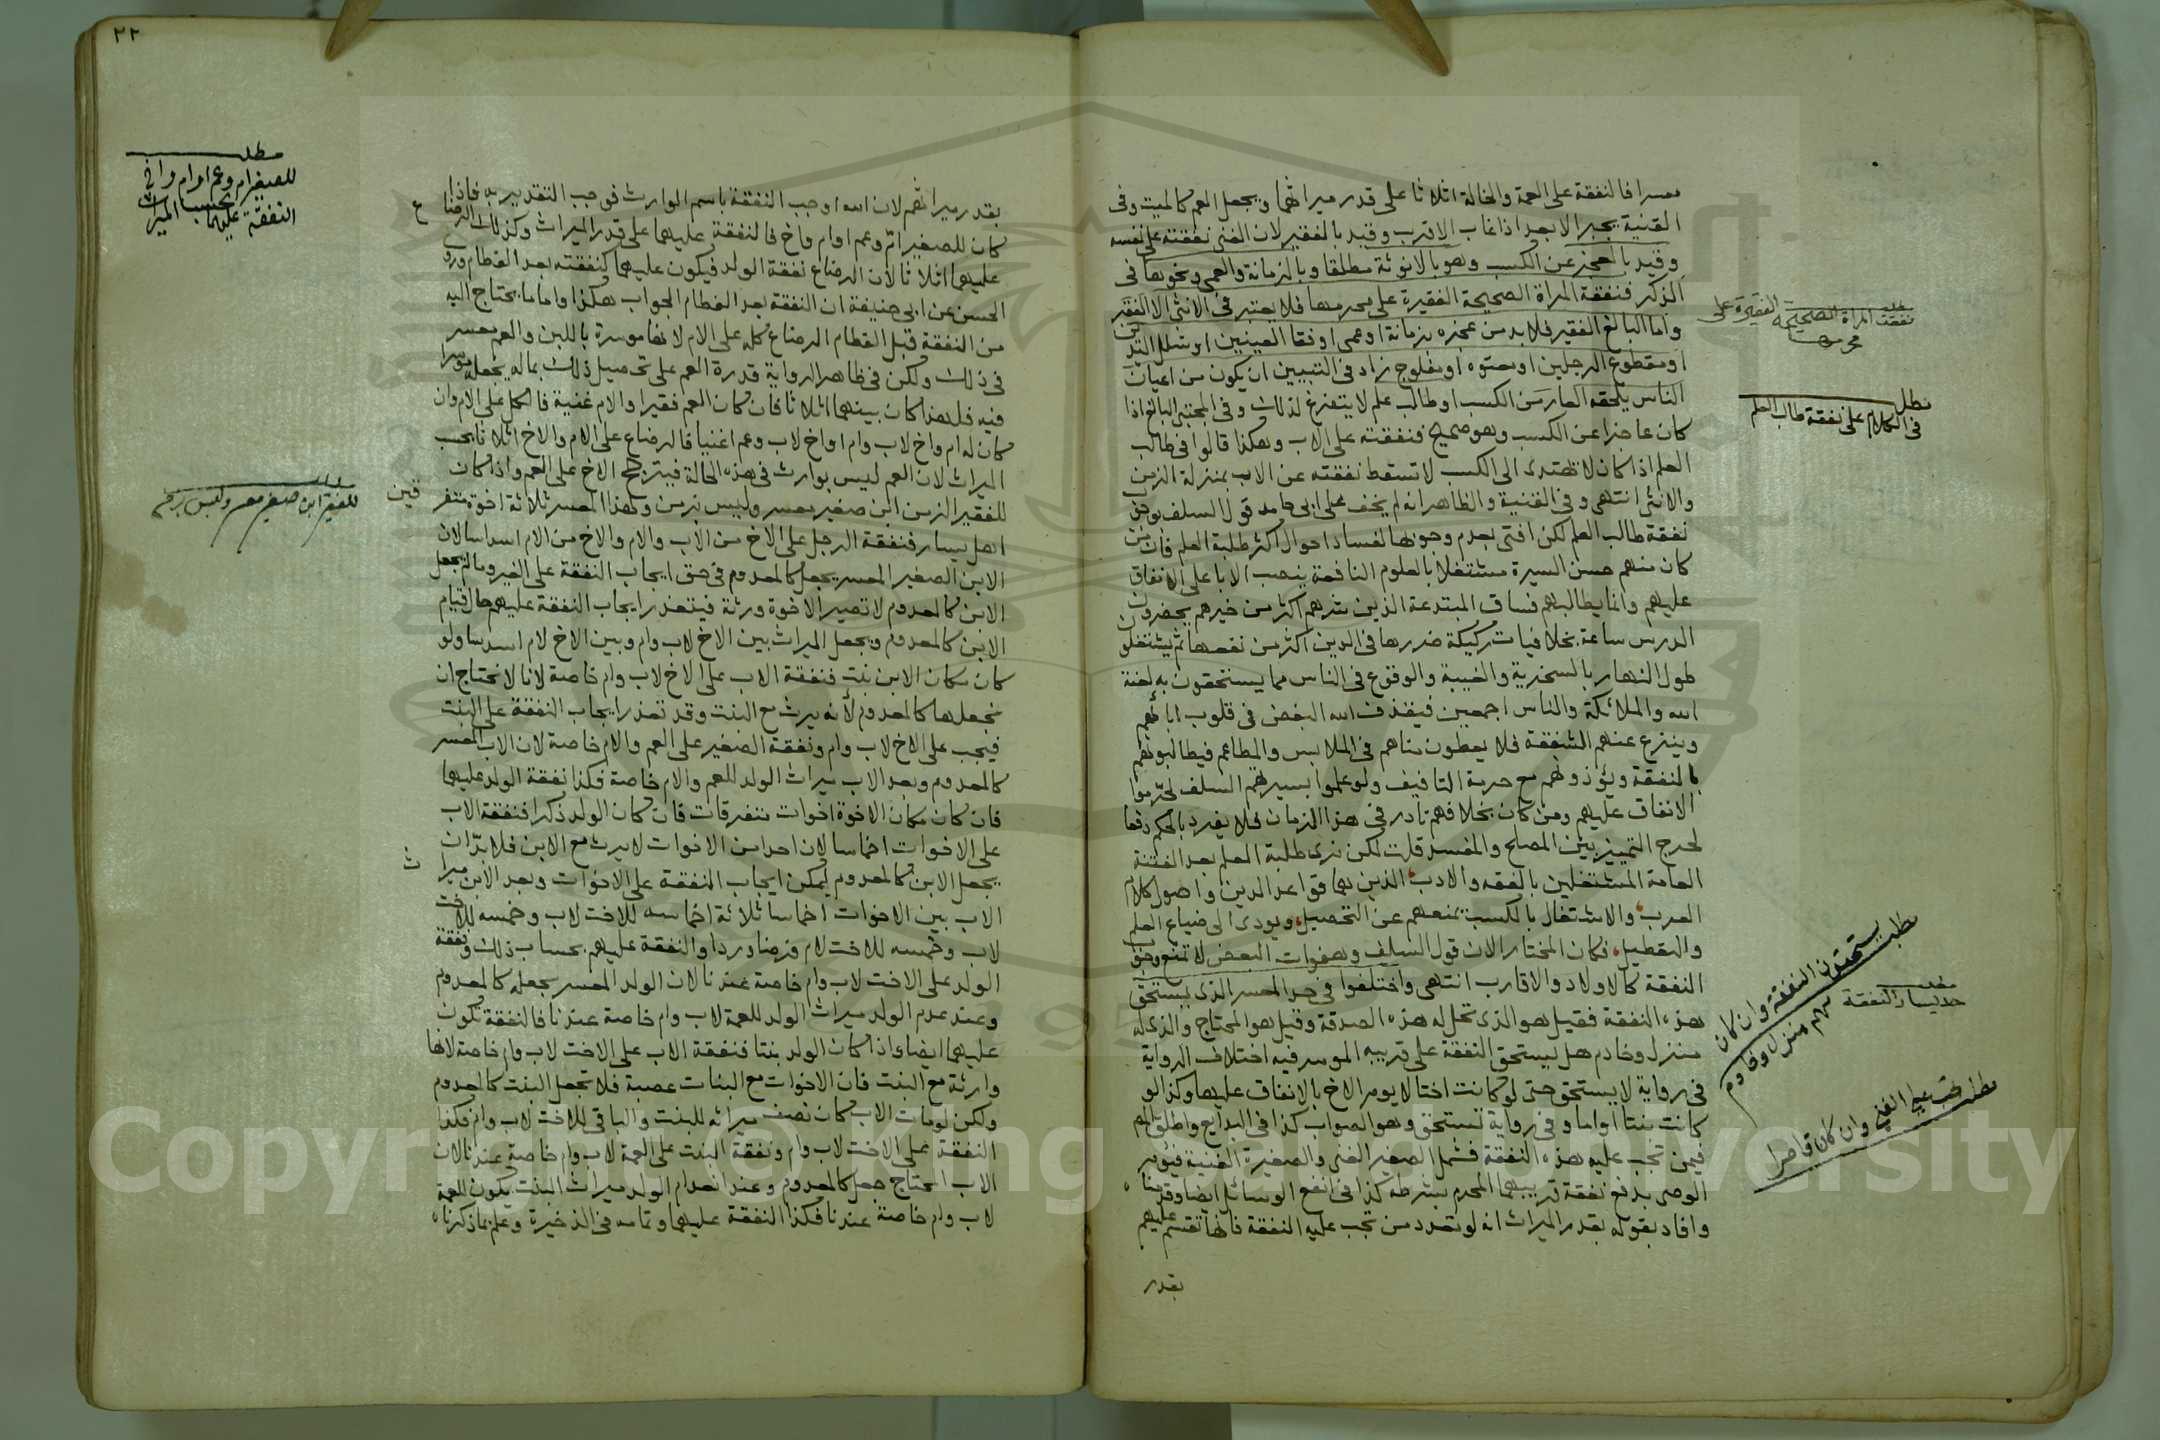 معسرا فالنفقة على العمة والخالة اثلاثا على قدر ميراثهما ويجعل العم كالميت وفى
القنية يجبر الابعد اذا غاب الاقرب وقيد بالفقير لان الغنى نفقته على نفسه
وقيد بالعجز عن الكسب وهو بالانوثة مطلقا وبالزمانة والعمى ونحوها فى
الذكر فنفقة المراة الصحيحة الفقيرة على محرمها فلا يعتبر فى الانثى الا الفقر
واما البالغ الفقير فلا بد من عجزه بزمانة او عمى او فقا العينين او شلل اليدين
او مقطوع الرجلين او معتوه او مفلوج زاد فى التبيين ان يكون من اعيان
الناس يلحقه العار من الكسب او طالب علم لا يتفرغ لذلك وفى المجتبى البالغ اذا
كان عاجزا عن الكسب وهو صحيح فنفقته على الاب وهكذا قالوا فى طالب
العلم اذا كان لا يهتدى الى الكسب لا تسقط نفقته عن الاب بمنزلة الزمن
والانثى انتهى وفى القنية والظاهر انه لم يخف على ابى حامد قول السلف بوجوب
نفقة طالب العلم لكن افتى بعدم وجوبها لفساد احوال اكثر طلبة العلم فان من
كان منهم حسن السيرة مشتغلا بالعلوم النافعة يجبر الابا على الانفاق
عليهم وانما يطالبهم فساق المبتدعة الذين شرهم اكثر من خيرهم يحضرون
الدرس ساعة بخلافيات ركيكة ضررها فى الدين اكثر من نفعها ثم يشتغلو
طول النهار بالسخرية والغيبة والوقوع فى الناس مما يستحقون به لعنة
الله والملائكة والناس اجمعين فيقذف الله البغض فى قلوب ابائهم
وينزع عنهم الشفقة فلا يعطون مناهم فى الملابس والمطاعم فيطالبونهم
بالنفقة ويؤذونهم مع حرمة التافيف ولو علموا بسيرتهم السلف لحرموا
الانفاق عليهم ومن كان بخلافهم نادر فى هذا الزمان فلا يفرد بالحكم دفعا
لحرج التمييز بين المصلح والمفسد قلت لكن نرى طلبة العلم بعد الفتنة
العامة المشتغلين بالفقه والادب الذين هما قواعد الدين واصول كلام
العرب والاشتغال بالكسب يمنعهم عن التحصيل ويودى الى ضياع العلم
والتعطيل فكان المختار الان قول السلف وهفوات البعض لا تمنع وجوب
النفقة كالاولاد والاقارب انتهى واختلفوا فى حد المعسر الذى يستحق
هذه النفقة فقيل هو الذى تحل له هذه الصدقة وقيل هو المحتاج والذى له
منزل وخادم هل يستحق النفقة على قريبه الموسر فيه اختلاف الرواية
فى رواية لا يستحق حتى لو كانت اختا لا يومر الاخ بالانفاق عليها وكذا لو
كانت بنتا او اما وفى رواية تستحق وهو الصواب كذا فى البدايع واطلق
فيمن تجب عليه هذه النفقة فشمل الصغير الغنى والصغيرة الغنية فيومر
الوصى بدفع نفقة قريبهما المحرم بشرطه كذا فى انفع الوسائل ايضا وقدمنا
وافاد بقوله بقدر الميراث انه لو تعدد من تجب عليه النفقة فانها تقسم عليهم
بقدر
مطلب
نفقة المراة الصحيحة الفقيرة على
محرمها
مطلب
فى الكلام على نفقة طالب العلم
مطلب يستحقون النفقة وان كان
لهم منزل وخادم
مطلب
حد يسار النفقة
مطلب تجب على الغنى وان كان قاصرا
٢٢
بقدر ميراثهم لان الله اوجب النفقة باسم الوارث فوجب التقدير به فاذا
كان للصغير ام وعم او ام واخ فالنفقة عليهما على قدر الميراث وكذلك الرضاع
عليهما اثلاثا لان الرضاع نفقة الولد فيكون عليهما كنفقته بعد الفطام وروى
الحسن عن ابى حنيفة ان النفقة بعد الفطام الجواب هكذا واما ما يحتاج اليه
من النفقة قبل الفطام الرضاع كله على الام لانها موسرة باللبن والعم معسر
فى ذلك ولكن فى ظاهر الرواية قدرة العم على تحصيل ذلك بماله يجعله موسرا
فيه فلهذا كان بينهما اثلاثا فان كان العم فقيرا والام غنية فالكل على الام وان
كان له ام واخ لاب وام او اخ لاب وعم اغنيا فالرضاع على الام والاخ اثلاثا بحسب
الميراث لان العم ليس بوارث فى هذه الحالة فيترجح الاخ على العم واذا كان
للفقير الزمن ابن صغير معسر وليس بزمن ولهذا المعسر ثلاثة اخوة متفر
قين
اهل يسار فنفقة الرجل على الاخ من الاب والام والاخ من الام اسداسا لان
الابن الصغير المعسر يجعل كالمعدوم فى حق ايجاب النفقة على الغير وما لم يجعل
الابن كالمعدوم لا تصير الاخوة ورثة فيتعذر ايجاب النفقة عليهم حال قيام
الابن كالمعدوم ويجعل الميراث بين الاخ لاب وام وبين الاخ لام اسدسا ولو
كان مكان الابن بنت فنفقة الاب على الاخ لاب وام خاصة لانا لا نحتاج ان
نجعلها كالمعدوم لانه يرث مع البنت وقد تعذر ايجاب النفقة على البنت
فيجب على الاخ لاب وام ونفقة الصغير على العم والام خاصة لان الاب المعسر
كالمعدوم وبعد الاب ميراث الولد للعم والام خاصة فكذا نفقة الولد عليهما
فان كان مكان الاخوة اخوات متفرقات فان كان الولد ذكرا فنفقة الاب
على الاخوات اخماسا لان احدا من الاخوات لا يرث مع الابن فلا بد ان
يجعل الابن كالمعدوم ليمكن ايجاب النفقة على الاخوات وبعد الابن ميرا
ث
الاب بين الاخوات اخماسا ثلاثة اخماسه للاخت لاب وخمسه للاخت
لاب وخمسه للاخت لام فرضا وردا والنفقة عليهم بحساب ذلك ونفقة
الولد على الاخت لاب وام خاصة عندنا لان الولد المعسر يجعله كالمعدوم
وعند عدم الولد ميراث الولد للعمة لاب وام خاصة عندنا فالنفقة تكون
عليهما ايضا واذا كان الولد بنتا فنفقة الاب على الاخت لاب وام خاصة لانها
وارثة مع البنت فان الاخوات مع البنات عصبة فلا تجعل البنت كالمعدوم
ولكن لو مات الاب كان نصف ميراثه للبنت والباقى للاخت لاب وام فكذا
النفقة على الاخت لاب وام ونفقة البنت على العمة لاب وام خاصة عندنا لان
الاب المحتاج جعل كالمعدوم وعند انعدام الولد ميراث البنت يكون للعمة
لاب وام خاصة عندنا فكذا النفقة عليهما وتمامه فى الذخيرة وعلم بما ذكرناه
مطلب
للصغير ام وعم او ام واخ
النفقة عليهما بحسب الميراث
مطلب
للفقير ابن صغير معسر وليس بزمن
Copyright © King Saud University